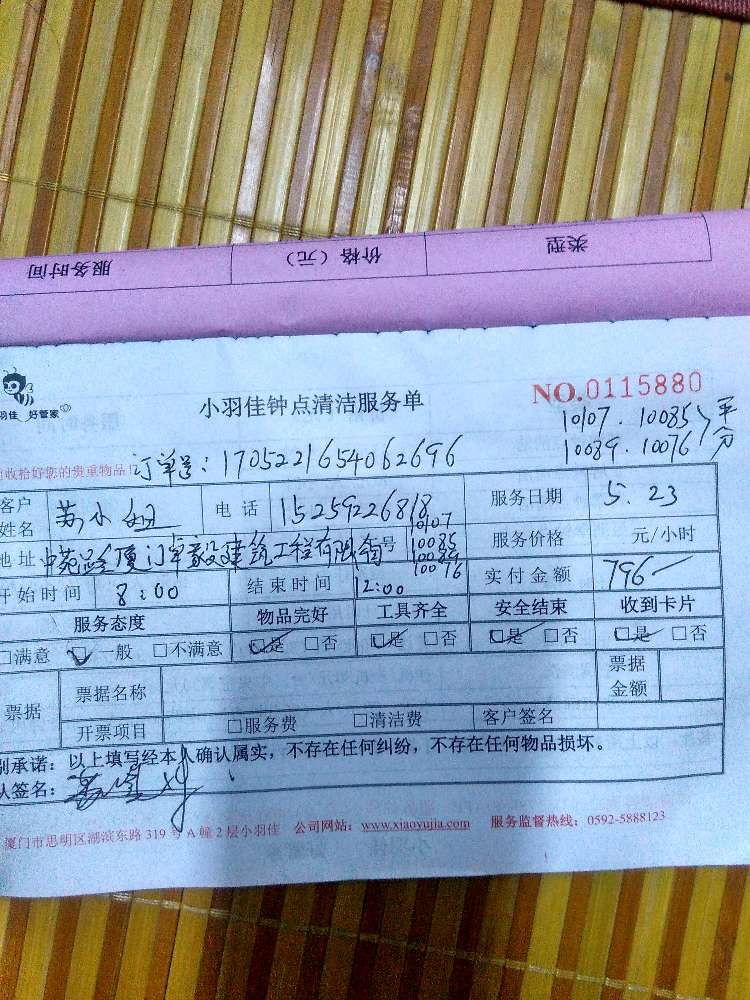 服务时间 价格（元） 类型
羽佳 好管家
小羽佳钟点清洁服务单
NO.0115880
10107. 10085 平
10089. 10076 分
收拾好您的贵重物品！ 订单号：1705221654062696
客户姓名 苏小姐 电话 15259226818 服务日期 5.23
地址 中苑路厦门卓毅建筑工程有限 号 10107 10085 10089 10076 服务价格 元/小时
开始时间 8:00 结束时间 12:00 实付金额 796
服务态度 物品完好 工具齐全 安全结束 收到卡片
□满意 □一般 □不满意 □是 □否 □是 □否 □是 □否 □是 □否
票据 票据名称 票据金额
开票项目 □服务费 □清洁费 客户签名
别承诺：以上填写经本人确认属实，不存在任何纠纷，不存在任何物品损坏。
人签名：
厦门市思明区湖滨东路 319 号 A 幢 2 层小羽佳 公司网站：www.xiaoyujia.com 服务监督热线：0592-5888123